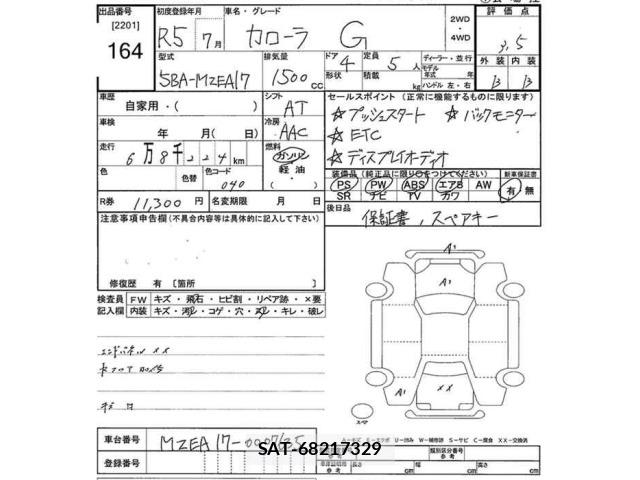 出品番号
[2201]
164
初度登録年月
R5 7月
車名・グレード
カローラ G
2WD
・
4WD
評価点
3.5
外装 内装
B B
型式
5BA-MZEA17
排気量
1500 cc
ドア 4
形状
定員 5 人
積載 kg
ディーラー・並行
モデル
年式 年
ハンドル 左・右
車歴
自家用・( )
シフト
AT
車検
年 月( 日)
冷房
AAC
走行
6万8千224km
燃料
ガソリン
軽油
・( )
色
色替
色コード
040
R券
11,300 円
名変期限 月 日
セールスポイント (正常に機能するものに限ります)
☆プッシュスタート ☆バックモニター
☆ETC
☆ディスプレイオーディオ
装備品 (純正品に限り○をつけてください)
PS PW ABS エアB AW
SR ナビ TV カワ
新車保証書
有・無
後日品
保証書、スペアキー
注意事項申告欄(不具合内容等は具体的に記入して下さい)
修復歴 有 〔箇所 〕
検査員
記入欄
FW キズ・飛石・ヒビ割・リペア跡・×要
内装 キズ・汚レ・コゲ・穴・スレ・キレ・破レ
エンドパネル XX
キズ 凹
A1
A1
A1
XX
スペア
車台番号
MZEA17-
登録番号
SAT-68217329
A-キズ E-エクボ U-凹み W-補修跡 S-サビ C-腐食 XX-交換済
長さ cm
幅 cm
高さ cm